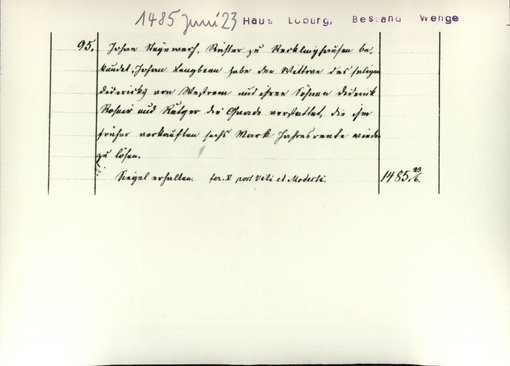 1485 Juni 23 Haus Loburg, Bestand Wenge
95. Johan Reynwerß, Richter zu Recklinghausen be-
kundet, Johan Langbeen habe der Wittwe des seligen
Didericks von Westrem und ihren Söhnen Diderick
und Rutger die Gnade verstattet, die ihm
früher verkauften sechs Mark Jahresrente wieder
zu lösen.
Siegel erhalten. fer. V post Viti et Modesti. 1485 23/6.